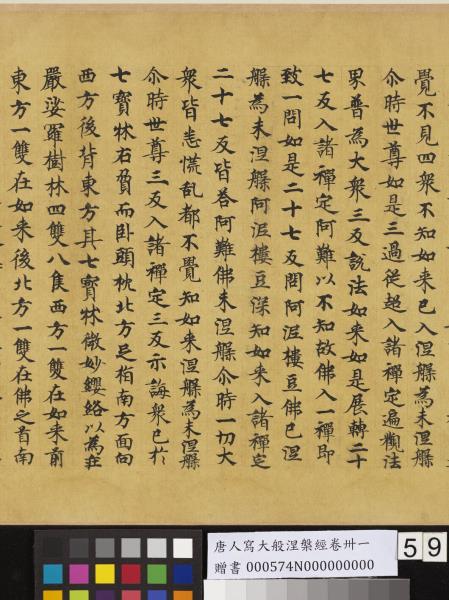 覺不見四衆不知如来已入涅槃為未涅槃
尒時世尊如是三過從超入諸禪定遍觀法
界普為大衆三反說法如来如是展轉二十
七反入諸禪定阿難以不知故佛入一禪即
致一問如是二十七反問阿泥樓豆佛已涅
槃為未涅槃阿泥樓豆深知如来入諸禪定
二十七反皆荅阿難佛未涅槃尒時一切大
衆皆悉慌乱都不覺知如来涅槃為未涅槃
尒時世尊三反入諸禪定三反示誨衆已於
七寶牀右脅而卧頭枕北方足指南方面向
西方後背東方其七寶牀微妙纓絡以為莊
嚴娑羅樹林四雙八隻西方一雙在如来前
東方一雙在如来後北方一雙在佛之首南
唐人寫大般涅槃經卷卅一
贈書 000574N000000000
59